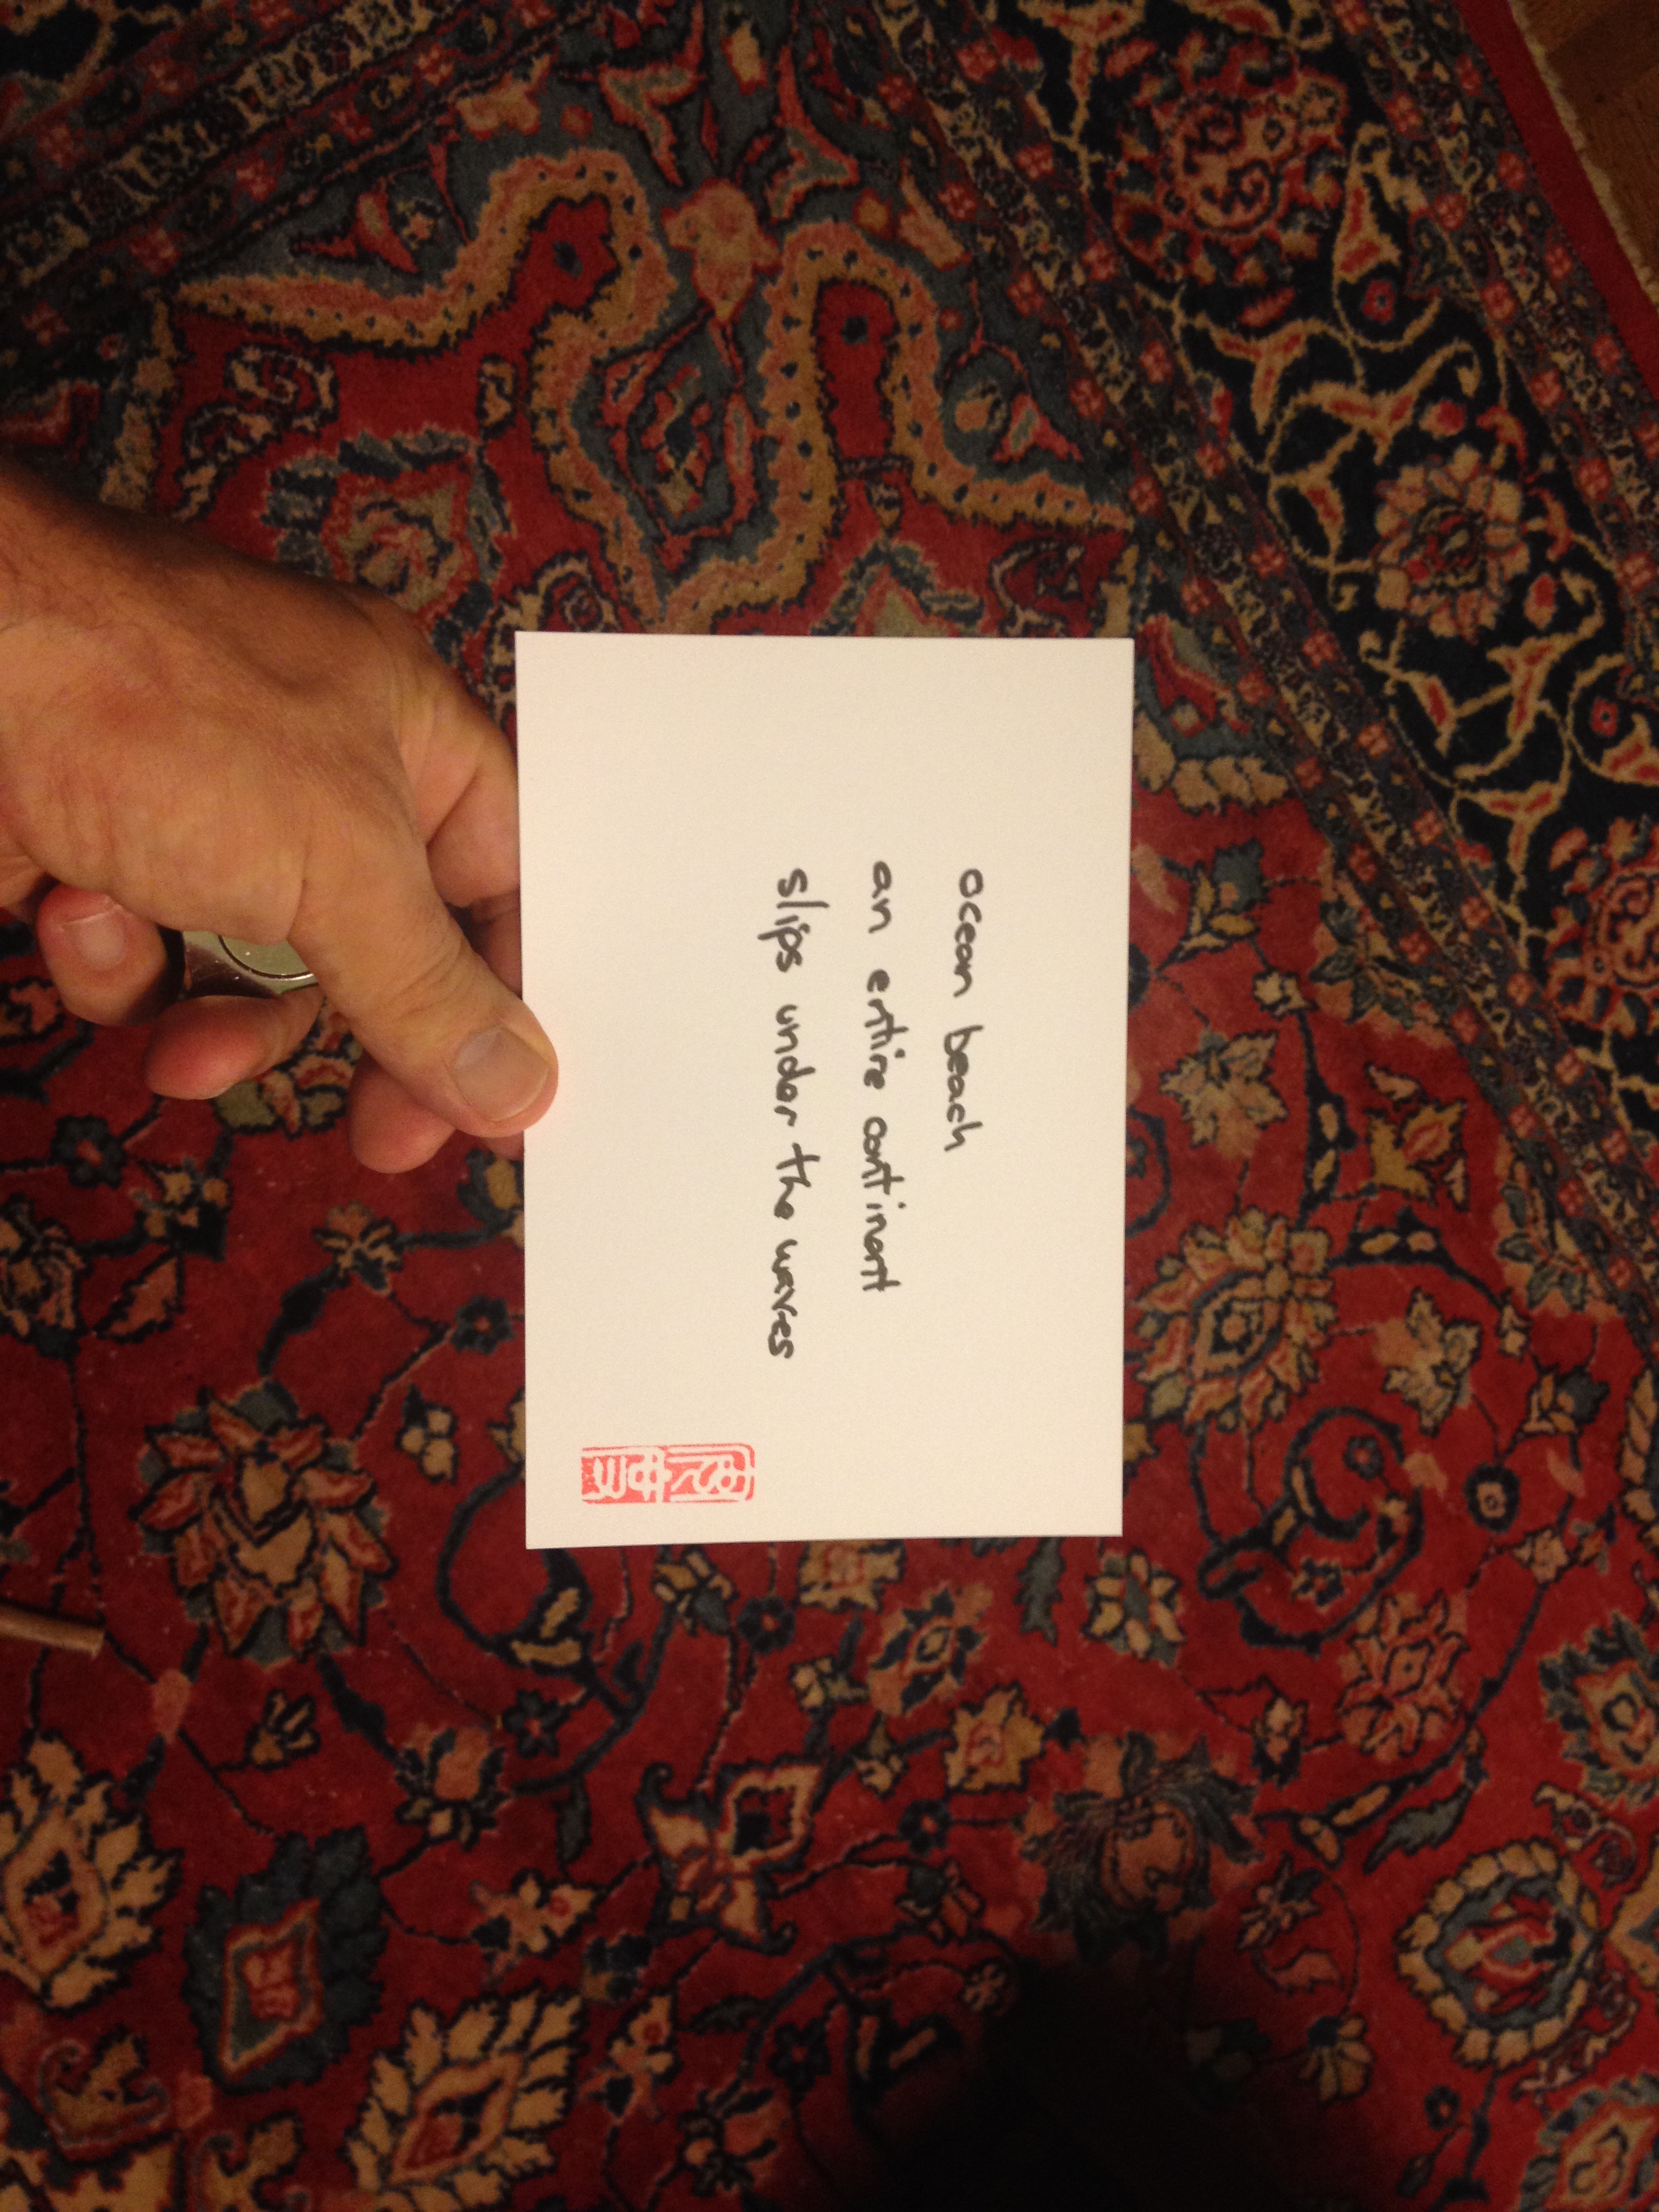 ocean beach
an entire continent
slips under the waves